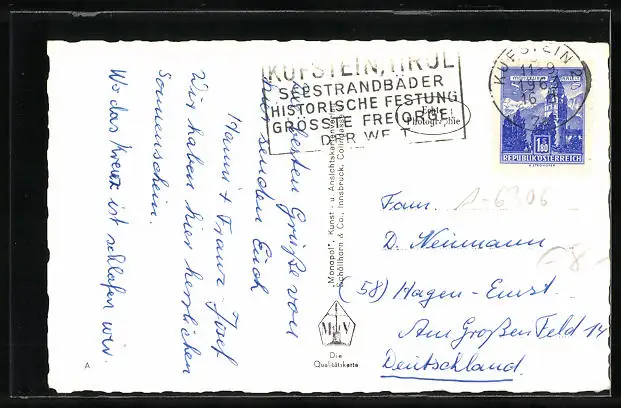 KUFSTEIN, TIROL
SEESTRANDBÄDER
HISTORISCHE FESTUNG
GRÖSSTE FREIORGEL
DER WELT
KUFSTEIN
11-9
1.80
REPUBLIK ÖSTERREICH
Echte
Photographie
besten Grüße von
hier senden Euch
Hanni + Franz-Josef
Wir haben hier herrlichen
Sonnenschein.
Wo das Kreuz ist schlafen wir.
"Monopol", Kunst- u. Ansichtskartenverlag
Schöllhorn & Co., Innsbruck,
Fam. A-6306
D. Neumann
(58) Hagen-Emst.
Am Großen Feld 14
Deutschland.
-8-
MV
Die
Qualitätskarte
A